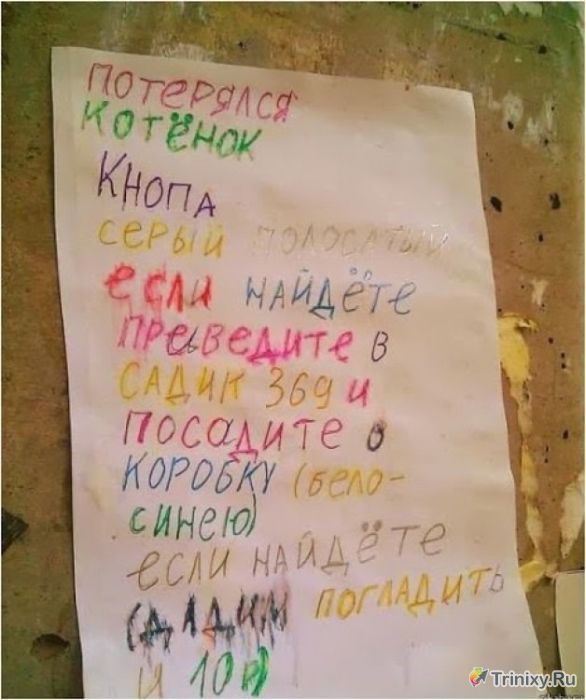 ПОТЕРЯЛСЯ
КОТЁНОК
КНОПА
СЕРЫЙ ПОЛОСАТЫЙ
если НАЙДЁТЕ
ПРЕВЕДИТЕ В
САДИК 369 и
ПОСАДИТЕ В
КОРОБКУ (бело-
синею)
если НАЙДЁТЕ
ДАДИМ ПОГЛАДИТЬ
И 10р
Trinixy.Ru